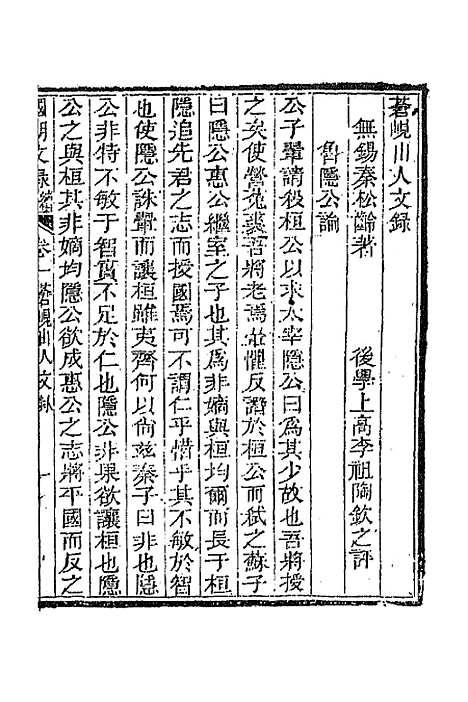 蒼峴山人文錄
無錫秦松齡著　後學上高李祖陶欽之評
魯隱公論
公子翬請殺桓公以求太宰隱公曰爲其少故也吾將授
之矣使營菟裘吾將老焉翬懼反譖於桓公而弒之蘇子
曰隱公惠公繼室之子也其爲非嫡與桓均爾而長于桓
隱追先君之志而授國焉可不謂仁乎惜乎其不敏於智
也使隱公誅翬而讓桓雖夷齊何以尚兹秦子曰非也隱
公非特不敏于智實不足於仁也隱公非果欲讓桓也隱
公之與桓其非嫡均隱公欲成惠公之志將平國而反之
國朝文錄 卷一 蒼峴山人文錄 一